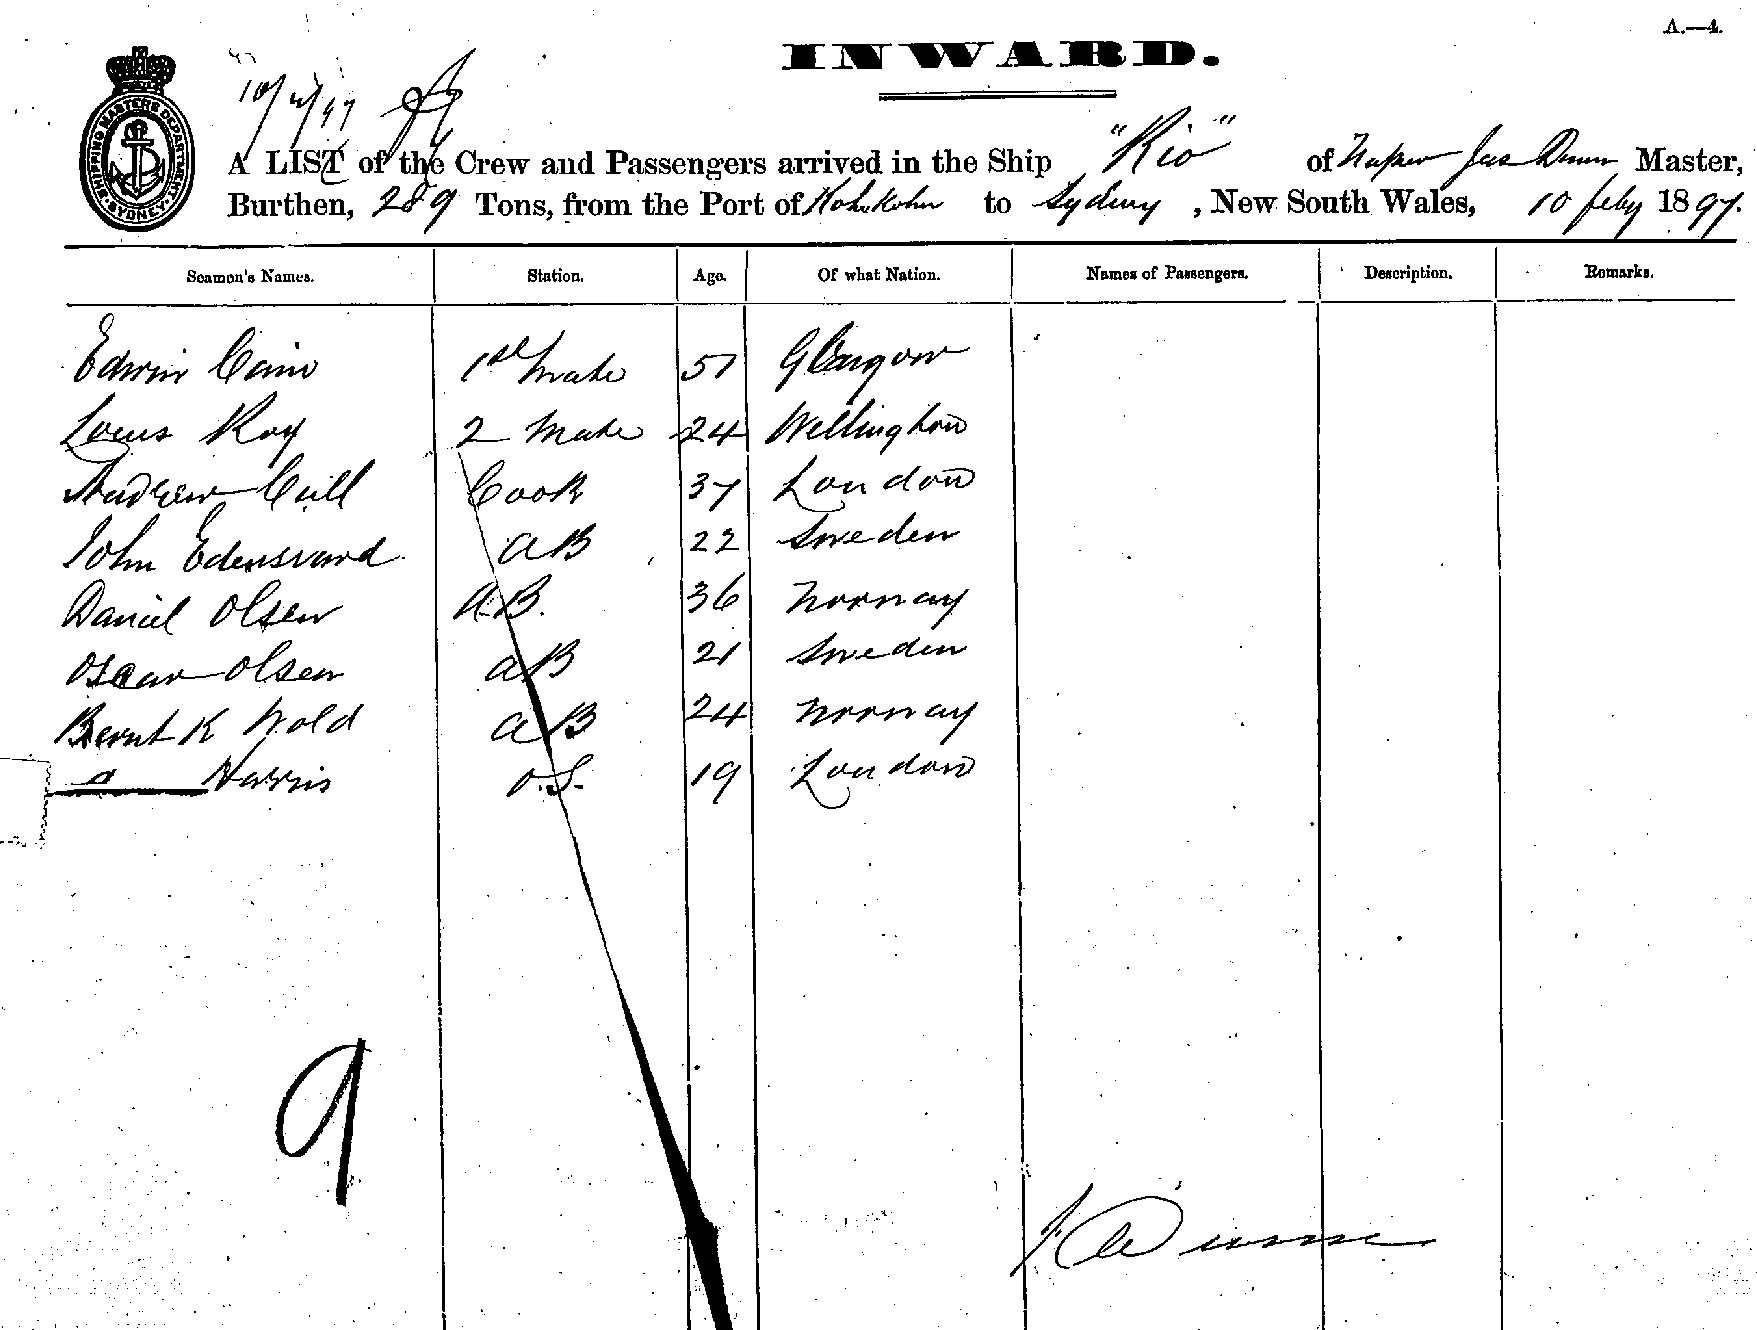 A.—4.
INWARD.
SHIPPING MASTERS DEPARTMENT
SYDNEY
10/2/97
A LIST of the Crew and Passengers arrived in the Ship "Rio" of Napier Jas Dunn Master,
Burthen, 289 Tons, from the Port of to Sydney, New South Wales, 10 feby 1897.
Seamen's Names. Station. Age. Of what Nation. Names of Passengers. Description. Remarks.
Edwin Cain 1st Mate 51 Glasgow
Louis Roy 2 Mate 24 Wellington
Andrew Cull Cook 37 London
John Edensvard AB 22 Sweden
Daniel Olsen A.B. 36 Norway
Oscar Olsen AB 21 Sweden
Bernt K Wold AB 24 Norway
Harris O.S. 19 London
9